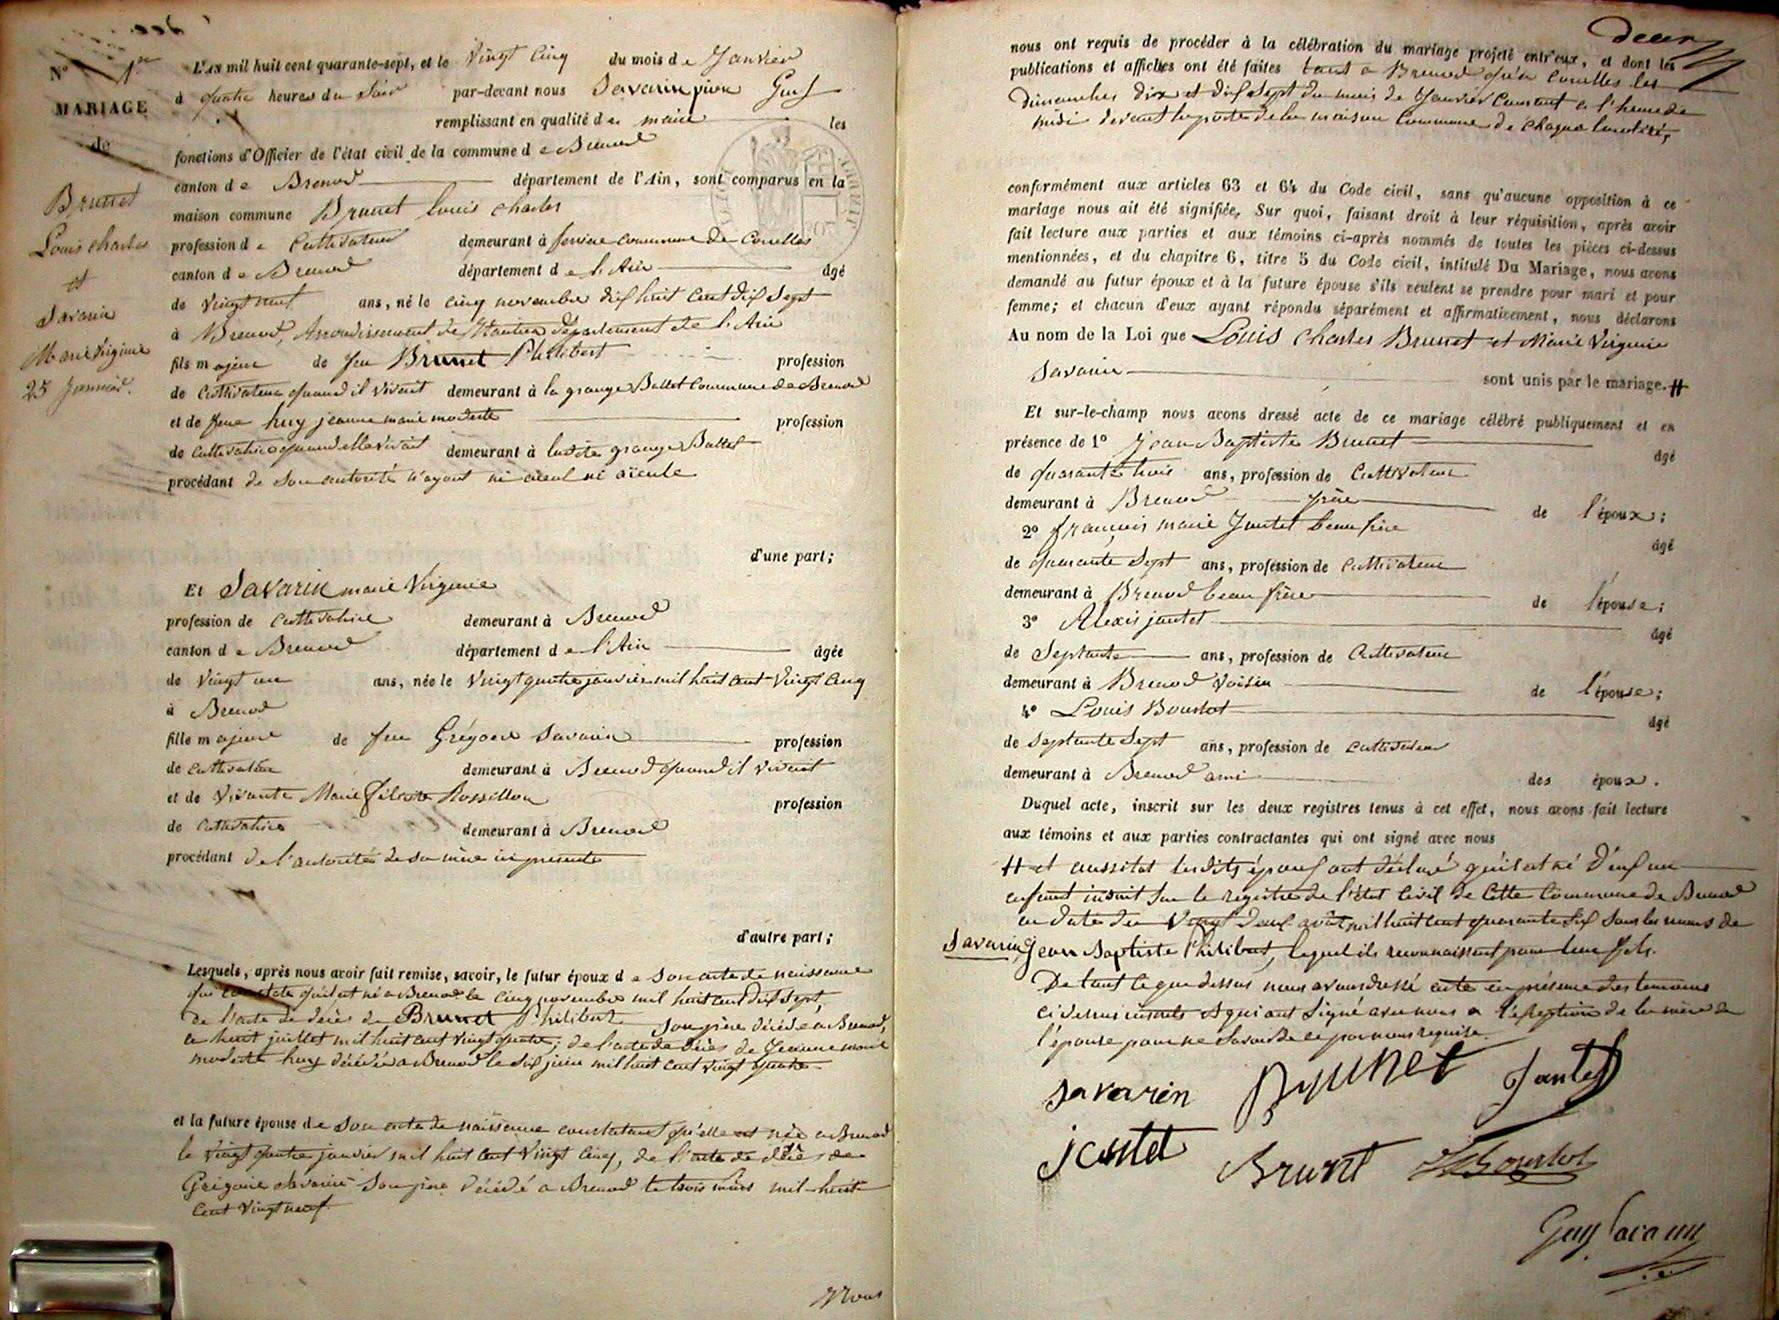 N° 1er
MARIAGE
de
Brunet
Louis charles
et
Savarin
Marie Virginie
25 Janvier.
L'AN mil huit cent quarante-sept, et le Vingt Cinq du mois de Janvier
à quatre heures du Soir par-devant nous Savarin Guy
remplissant en qualité de maire les
fonctions d'Officier de l'état civil de la commune de Brenod
canton de Brenod département de l'Ain, sont comparus en la
maison commune Brunet Louis charles
profession de Cultivateur demeurant à commune de Corcelles
canton de Brenod département de l'Ain âgé
de vingt neuf ans, né le cinq novembre dix huit cent dix sept
à Brenod, Arrondissement de Nantua département de l'Ain
fils majeur de feu Brunet Philibert profession
de Cultivateur quand il vivait demeurant à la grange Ballet Commune de Brenod
et de feue huy jeanne marie modeste profession
de Cultivatrice quand elle vivait demeurant à ladite grange Ballet
procédant de Son autorité n'ayant ni aieul ni aïeule
d'une part;
Et Savarin marie Virginie
profession de Cultivatrice demeurant à Brenod
canton de Brenod département de l'Ain âgée
de Vingt un ans, née le Vingt quatre janvier mil huit cent Vingt Cinq
à Brenod
fille majeure de feu Grégoire Savarin profession
de cultivateur demeurant à Brenod quand il vivait
et de Vivante Marie Rossillon profession
de Cultivatrice demeurant à Brenod
procédant de l'autorité de sa mère ici présente
d'autre part;
Lesquels, après nous avoir fait remise, savoir, le futur époux de Son acte de naissance
qui constate qu'il est né a Brenod le Cinq novembre mil huit cent dix sept,
de l'acte de décès de Brunet Philibert Son père décédé a Brenod,
le huit juillet mil huit cent vingt quatre; de l'acte de décès de Jeanne marie
modeste huy décédée a Brenod le Six juin mil huit cent vingt quatre.
et la future épouse de Son acte de naissance constatant qu'elle est née a Brenod
le Vingt quatre janvier mil huit Cent Vingt Cinq, de l'acte de décès de
Grégoire Savarin Son père décédé a Brenod le trois mars mil huit
Cent Vingt neuf
Nous
deux
nous ont requis de procéder à la célébration du mariage projeté entr'eux, et dont les
publications et affiches ont été faites tant a Brenod qu'a Corcelles les
dimanches dix et dix Sept du mois de Janvier Courant a l'heure de
midi devant la porte de la maison Commune de chaque localité;
conformément aux articles 63 et 64 du Code civil, sans qu'aucune opposition à ce
mariage nous ait été signifiée, Sur quoi, faisant droit à leur réquisition, après avoir
fait lecture aux parties et aux témoins ci-après nommés de toutes les pièces ci-dessus
mentionnées, et du chapitre 6, titre 5 du Code civil, intitulé Du Mariage, nous avons
demandé au futur époux et à la future épouse s'ils veulent se prendre pour mari et pour
femme; et chacun d'eux ayant répondu séparément et affirmativement, nous déclarons
Au nom de la Loi que Louis Charles Brunet et Marie Virginie
Savarin sont unis par le mariage. #
Et sur-le-champ nous avons dressé acte de ce mariage célébré publiquement et en
présence de 1° Jean Baptiste Brunet âgé
de quarante trois ans, profession de Cultivateur
demeurant à Brenod frère de l'époux;
2° François marie Jantet beau frère âgé
de quarante Sept ans, profession de Cultivateur
demeurant à Brenod beau frère de l'épouse;
3° Alexis jantet âgé
de Septante ans, profession de Cultivateur
demeurant à Brenod Voisin de l'épouse;
4° Louis Bourlot âgé
de Septante Sept ans, profession de cultivateur
demeurant à Brenod ami des époux.
Duquel acte, inscrit sur les deux registres tenus à cet effet, nous avons fait lecture
aux témoins et aux parties contractantes qui ont signé avec nous
# et aussitot lesdits époux ont déclaré qu'il est né d'eux un
enfant inscrit Sur le registre de l'état Civil de Cette Commune de Brenod
en date du Vingt deux août mil huit cent quarante Six Sous les noms de
Savarin, Jean Baptiste Philibert, lequel ils reconnaissent pour leur fils.
De tout Ce que dessus nous avons dressé acte en présence des temoins
ci dessus et qui ont Signé avec nous a l'éxeption de la mère de
l'épouse pour ne Savoir de ce par nous requise.
Savarin Brunet Jantet
jantet Brunet Bourlot
Guy Savarin